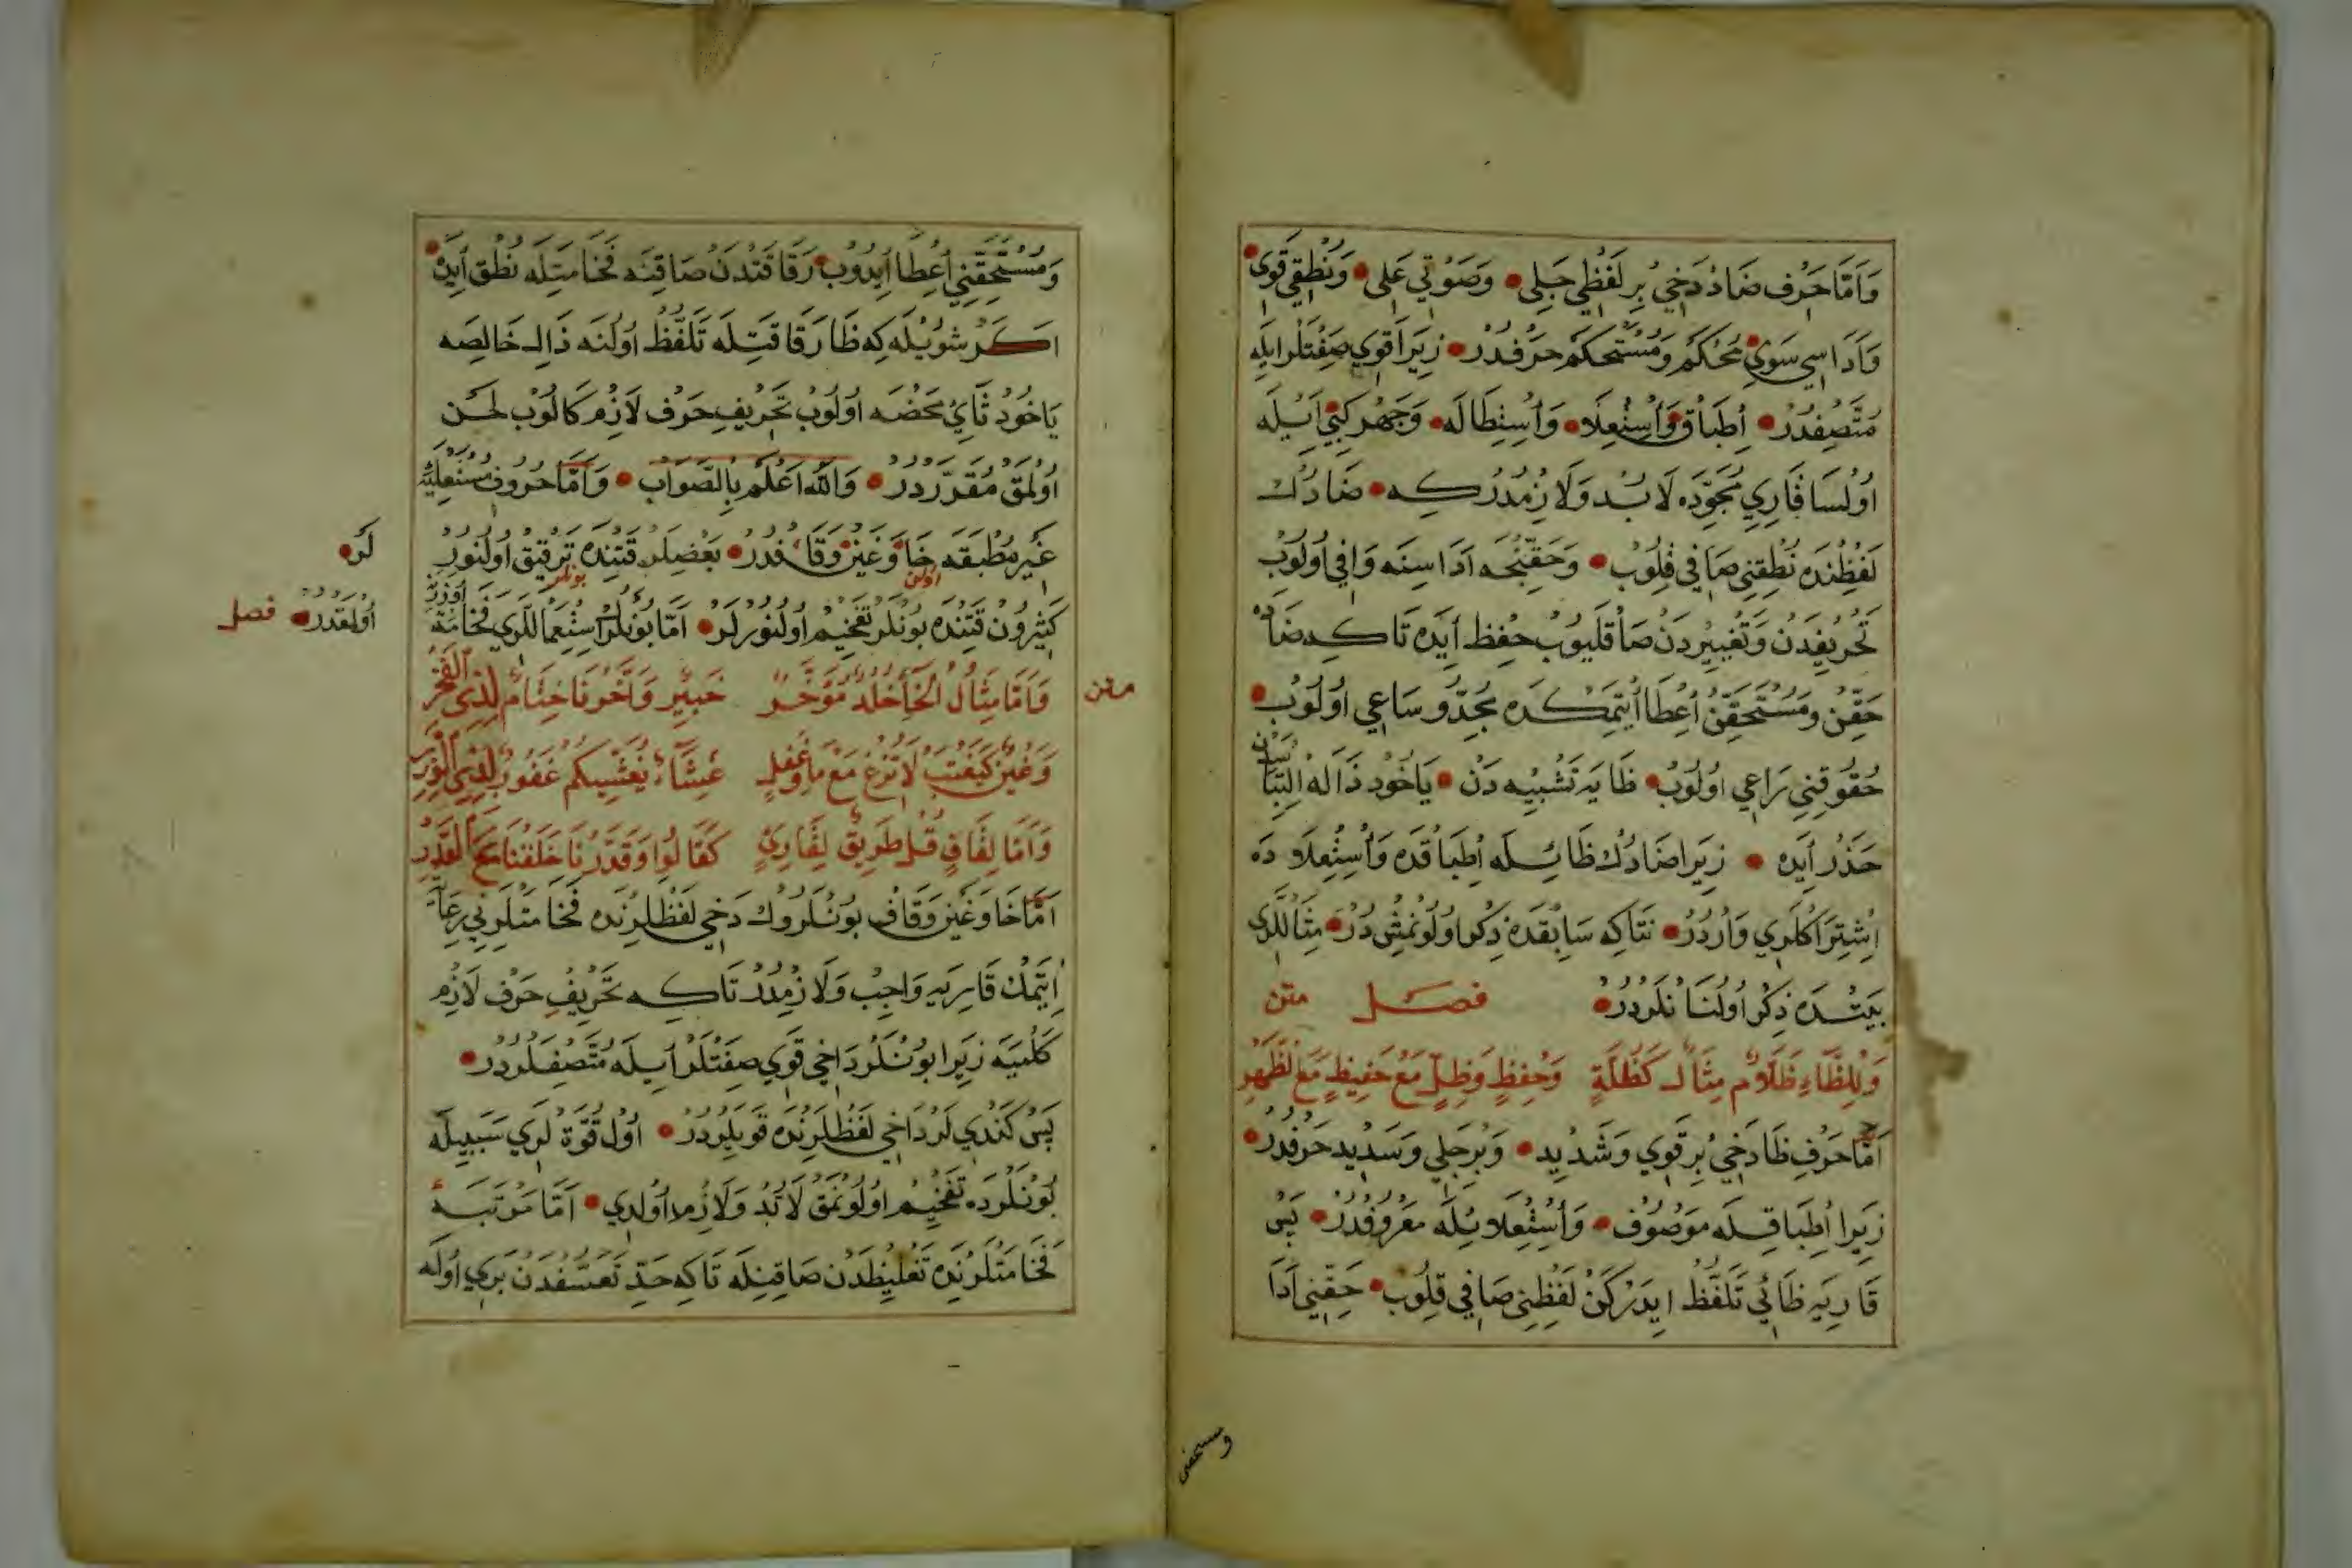 وَاَمَّا حَرْف ضَادْ دَخِي بُرِ لَفْظِي جَلِي وَصَوْتِي عَلِى وَنُطْقِي قَوِى
وَاَدَاسِي سَوِي مُحْكَمْ وَمُسْتَحْكَمْ حَرْفدُرْ زِيَرا قَوِي صِفَتْلَرايلَه
مُتَّصِفدُرْ اِطْبَاقْ وَاسْتِعْلَا وَاسْتِطَالَه وَجَهْر كَبِي اَيْلَه
اوُلْسَا قَارِي مُجَوِّدَه لَا بُد وَلَازِمدُركه ضَادُك
لَفْظِنْدَه نُطْقِنِي صَافِي قِلُوبْ وَحَقِنْجَه اَدَاسِنَه وَافِي اُولُوبْ
تَحْرِيفْدَنْ وَتَغْيِيْردَنْ صَاقْلَيوُبْ حِفْظ اَيدَه تَاكه ضَادْ
حَقِّنْ وَمُسْتَحَقِّنْ اِعْطَا اَيتمَكْدَه مُجِدّ وسَاعِي اوُلوُبْ
حُقوُقِنِي رَاعِي اوُلوُبْ ظَايَه تَشْبِيْه دَنْ يَاخُود ذَالَه اِلْتِبَاسْدَن
حَذَرْ اَيدَه زِيَرا ضَادُك ظَائِلَه اِطْبَاقْدَه وَاسْتِعْلَادَه
اِشْتِرَاكْلَرِي وَارْدُرْ نَتَاكِه سَابِقْدَه ذِكْر اوُلوُنْمِشْ دُرْ مِثَاللَّرِى
بَيْتْدَه ذِكْر اوُلُنَانْلَردُرْ فصل متن
وَلِلظَّاءِ ظَلَّامٍ مِثَالٌ كَظُلَّةٍ وَحِفْظٍ وَظِلٍّ مَعْ حَفِيظٍ مَعَ لظَّهْرِ
اَمَّا حَرْفِ ظَا دَخِي بُرِ قَوِي وَشَدِيد وَبُر جَلِي وَسَدِيد حَرْفدُرْ
زِيَرا اِطْبَاقِلَه مَوْصُوف وَاسْتِعْلَا يْلَه مَعْروُفدُرْ بَس
قَارِيَه ظَائِي تَلَفُّظْ ايدَركَنْ لَفْظِنِي صَافِي قِلُوبْ حَقِّنِي اَدَا
ومستحقنى
وَمُسْتَحَقِّنِي اِعْطَا اَيدُوبْ رَقَاقَتْدَنْ صَاقِنَه فَخَامَتِلَه نُطْق اَيدَه
اَكَرْ شوُيْلَه كِه ظَا رَقَاقَتِلَه تَلَفُّظْ اوُلُنَه ذَالِ خَالِصَه
يَاخُودْ ثَايِ مَحْضَه اوُلوُبْ تَحْرِيفِ حَرْف لَازِم كَالُوبْ لَحْن
اوُلْمَقْ مُقَرَّردُرْ وَاللّٰه اَعْلَمُ بِالصَّوَاب وَاَمَّا حُروُف مُسْتَعْلِيَهِ
غَيْر مُطْبَقَه خَا وَغَيْن وَقَافدُرْ بَعْضِلَرْ قَتِنْدَه تَرْقِيقْ اوُلنوُرْ
لَر
كَثِيْروُن قَتِنْدَه بُونْلَرْ تَفْخِيْم اوُلنُورلَرْ اَمَّا بوُنْلَرْ اسْتِعْمَاللَّرِي فَخَامَةْ اوُزَرَه
اوُلمَقدُرْ فصل
متن
وَاَمَّا مِثَالُ الْخَاءِ خُلْدٌ مُؤَخَّرٌ خَبِيْرٌ وَاَخَّرْنَا خِتَامٌ لِذِى الفَخْرِ
وَغَيْنٍ كَيَغْتَبْ لَا تُزِغْ مَعَ غَافِلٍ غِشَاءٌ يُغَشِّيكُم غَفُورٌ لِذِى الوِزْرِ
وَاَمَّا لِقَافٍ قُلْ طَرِيقٌ لِقَارِئٍ كَقَالُوا وَقَدَّرْنَا خَلَقْنَا مَعَ القَدْرِ
اَمَّا خَا وَغَيْن وَقَافْ بوُنْلَروُكْ دَخِي لَفْظْلَرِنْدَه فَخَامَتْلَرِنِي رِعَايَة
اِيتمَكْ قَارِيَه وَاجِبْ وَلَازِمْدُرْ تَاكه تَحْرِيفِ حَرْف لَازِم
كَلْمَيَه زِيَرا بوُنْلَردَاخِي قَوِي صِفَتْلَر اَيلَه مُتَّصِفلَردُرْ
بَسْ كَنْدِي لَرْدَاخِي لَفْظْلَرِنْدَه قَوِيلَردُرْ اوُلْ قُوَّة لَرِي سَبَبِيلَه
بوُنْلَردَه تَفْخِيْم اوُلوُنْمَقْ لَابُدْ وَلَازِم اوُلدِي اَمَّا مَرْتَبَهءِ
فَخَامَتْلَرِنْدَه تَغْلِيظْدَنْ صَاقِنِلَه تَاكِه حَدِّ تَعَسُّفدَنْ بَرِي اوُلَه